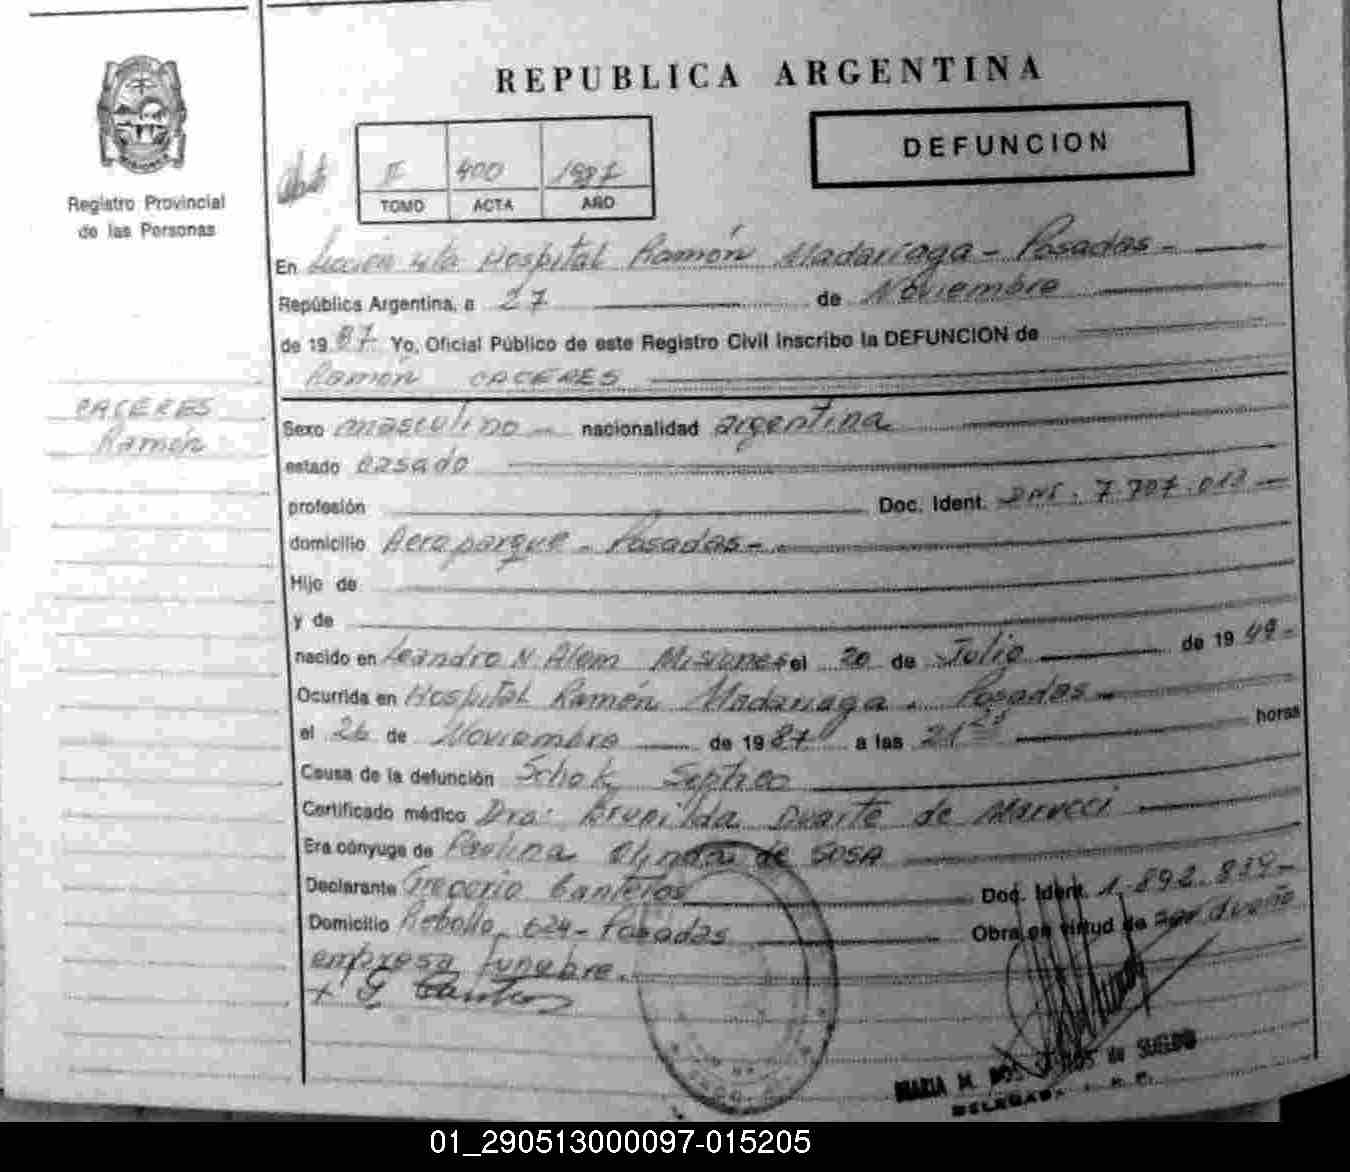 REPUBLICA ARGENTINA
DEFUNCION
II 400 1987
TOMO ACTA AÑO
Registro Provincial
de las Personas
En Sección 4ta Hospital Ramón Madariaga - Posadas -
República Argentina, a 27 de Noviembre
de 1987 Yo, Oficial Público de este Registro Civil inscribo la DEFUNCION de
Ramón CACERES
CACERES
Ramón
Sexo masculino - nacionalidad argentina
estado casado
profesión Doc. Ident. DNI. 7.707.013 -
domicilio Aeroparque - Posadas -
Hijo de
y de
nacido en Leandro N. Alem Misiones el 20 de Julio de 1949 -
Ocurrida en Hospital Ramón Madariaga - Posadas -
el 26 de Noviembre de 1987 a las 21 horas
Causa de la defunción Schok Septico
Certificado médico Dra: Brunilda Duarte de Marucci
Era cónyuge de Paulina de SOSA
Declarante Gregorio Canteros Doc. Ident. 1.892.839 -
Domicilio Rebollo 624 - Posadas Obra en virtud de ser dueño
empresa funebre.
MARIA M. DOS SANTOS de SUELDO
DELEGADA
01_290513000097-015205